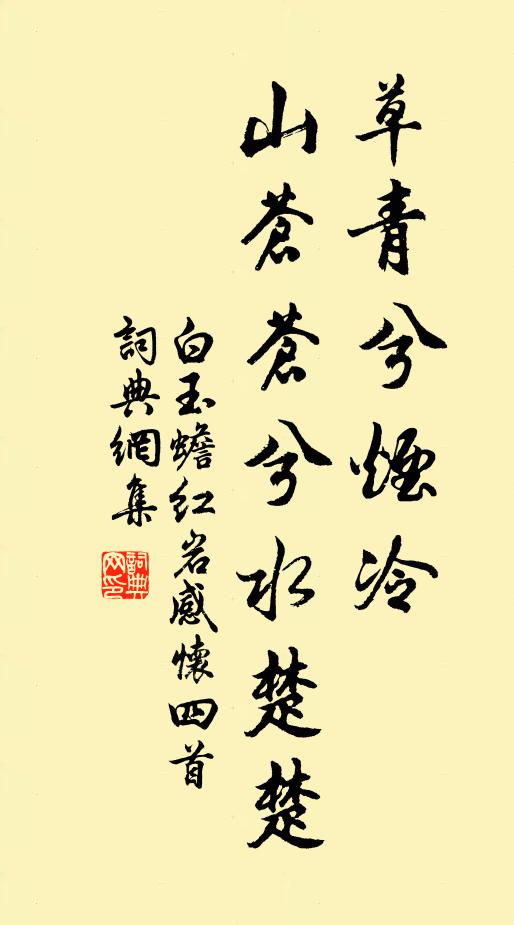 草青兮煙冷
山蒼蒼兮水楚楚
白玉蟾红岩感懷四首
詞典網集
詞典
网印